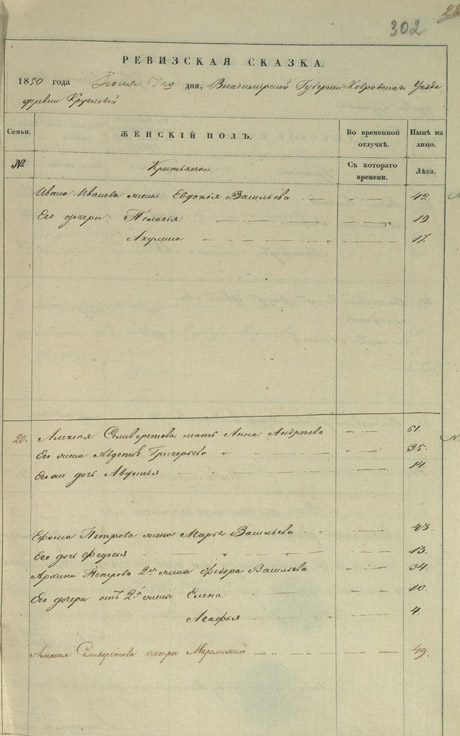 302
РЕВИЗСКАЯ СКАЗКА.
1850 года Июня дня, Владимирской Губернии Ковровскаго Уѣзда
Семьи. ЖЕНСКІЙ ПОЛЪ. Во временной отлучкѣ. Нынѣ на лицо.
№ Крестьянки. Съ котораго времени. Лѣта.
Ивана Иванова жена Евдокія Васильева 42.
Его дочери Пелагья 19.
Акулина 17.
20. Алексѣя Селиверстова мать Анна Андрѣева 61.
Его жена Авдотья Григорьева 35.
Его же дочь Авдотья 14.
Ефима Петрова жена Марья Васильева 43.
Его дочь Федосья 13.
Архипа Петрова 2я жена Федора Васильева 34.
Его дочери отъ 2й жены Елена 10.
Агафья 4.
Алексѣя Селиверстова сестра 49.